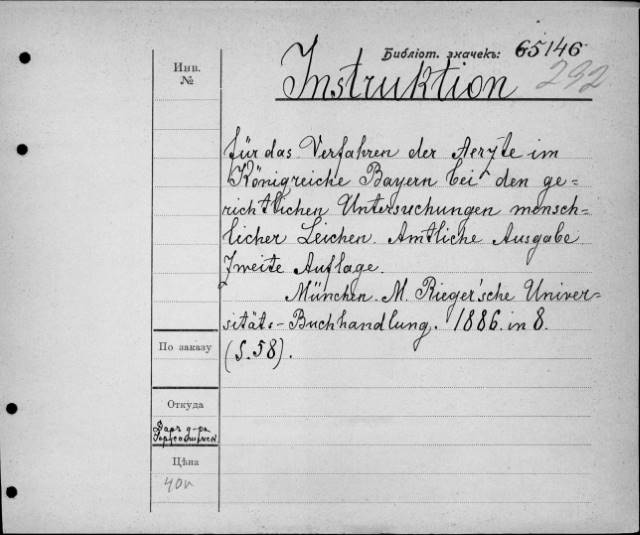 Библіот. значекъ: 65146
292
Instruktion
Инв.
№
für das Verfahren der Aerzte im
Königreiche Bayern bei den ge=
richtlichen Untersuchungen mensch=
licher Leichen. Amtliche Ausgabe
Zweite Auflage.
München. M. Rieger'sche Univer=
sitäts-Buchhandlung. 1886. in 8.
(S. 58).
По заказу
Откуда
Даръ д-ра
Цѣна
40к